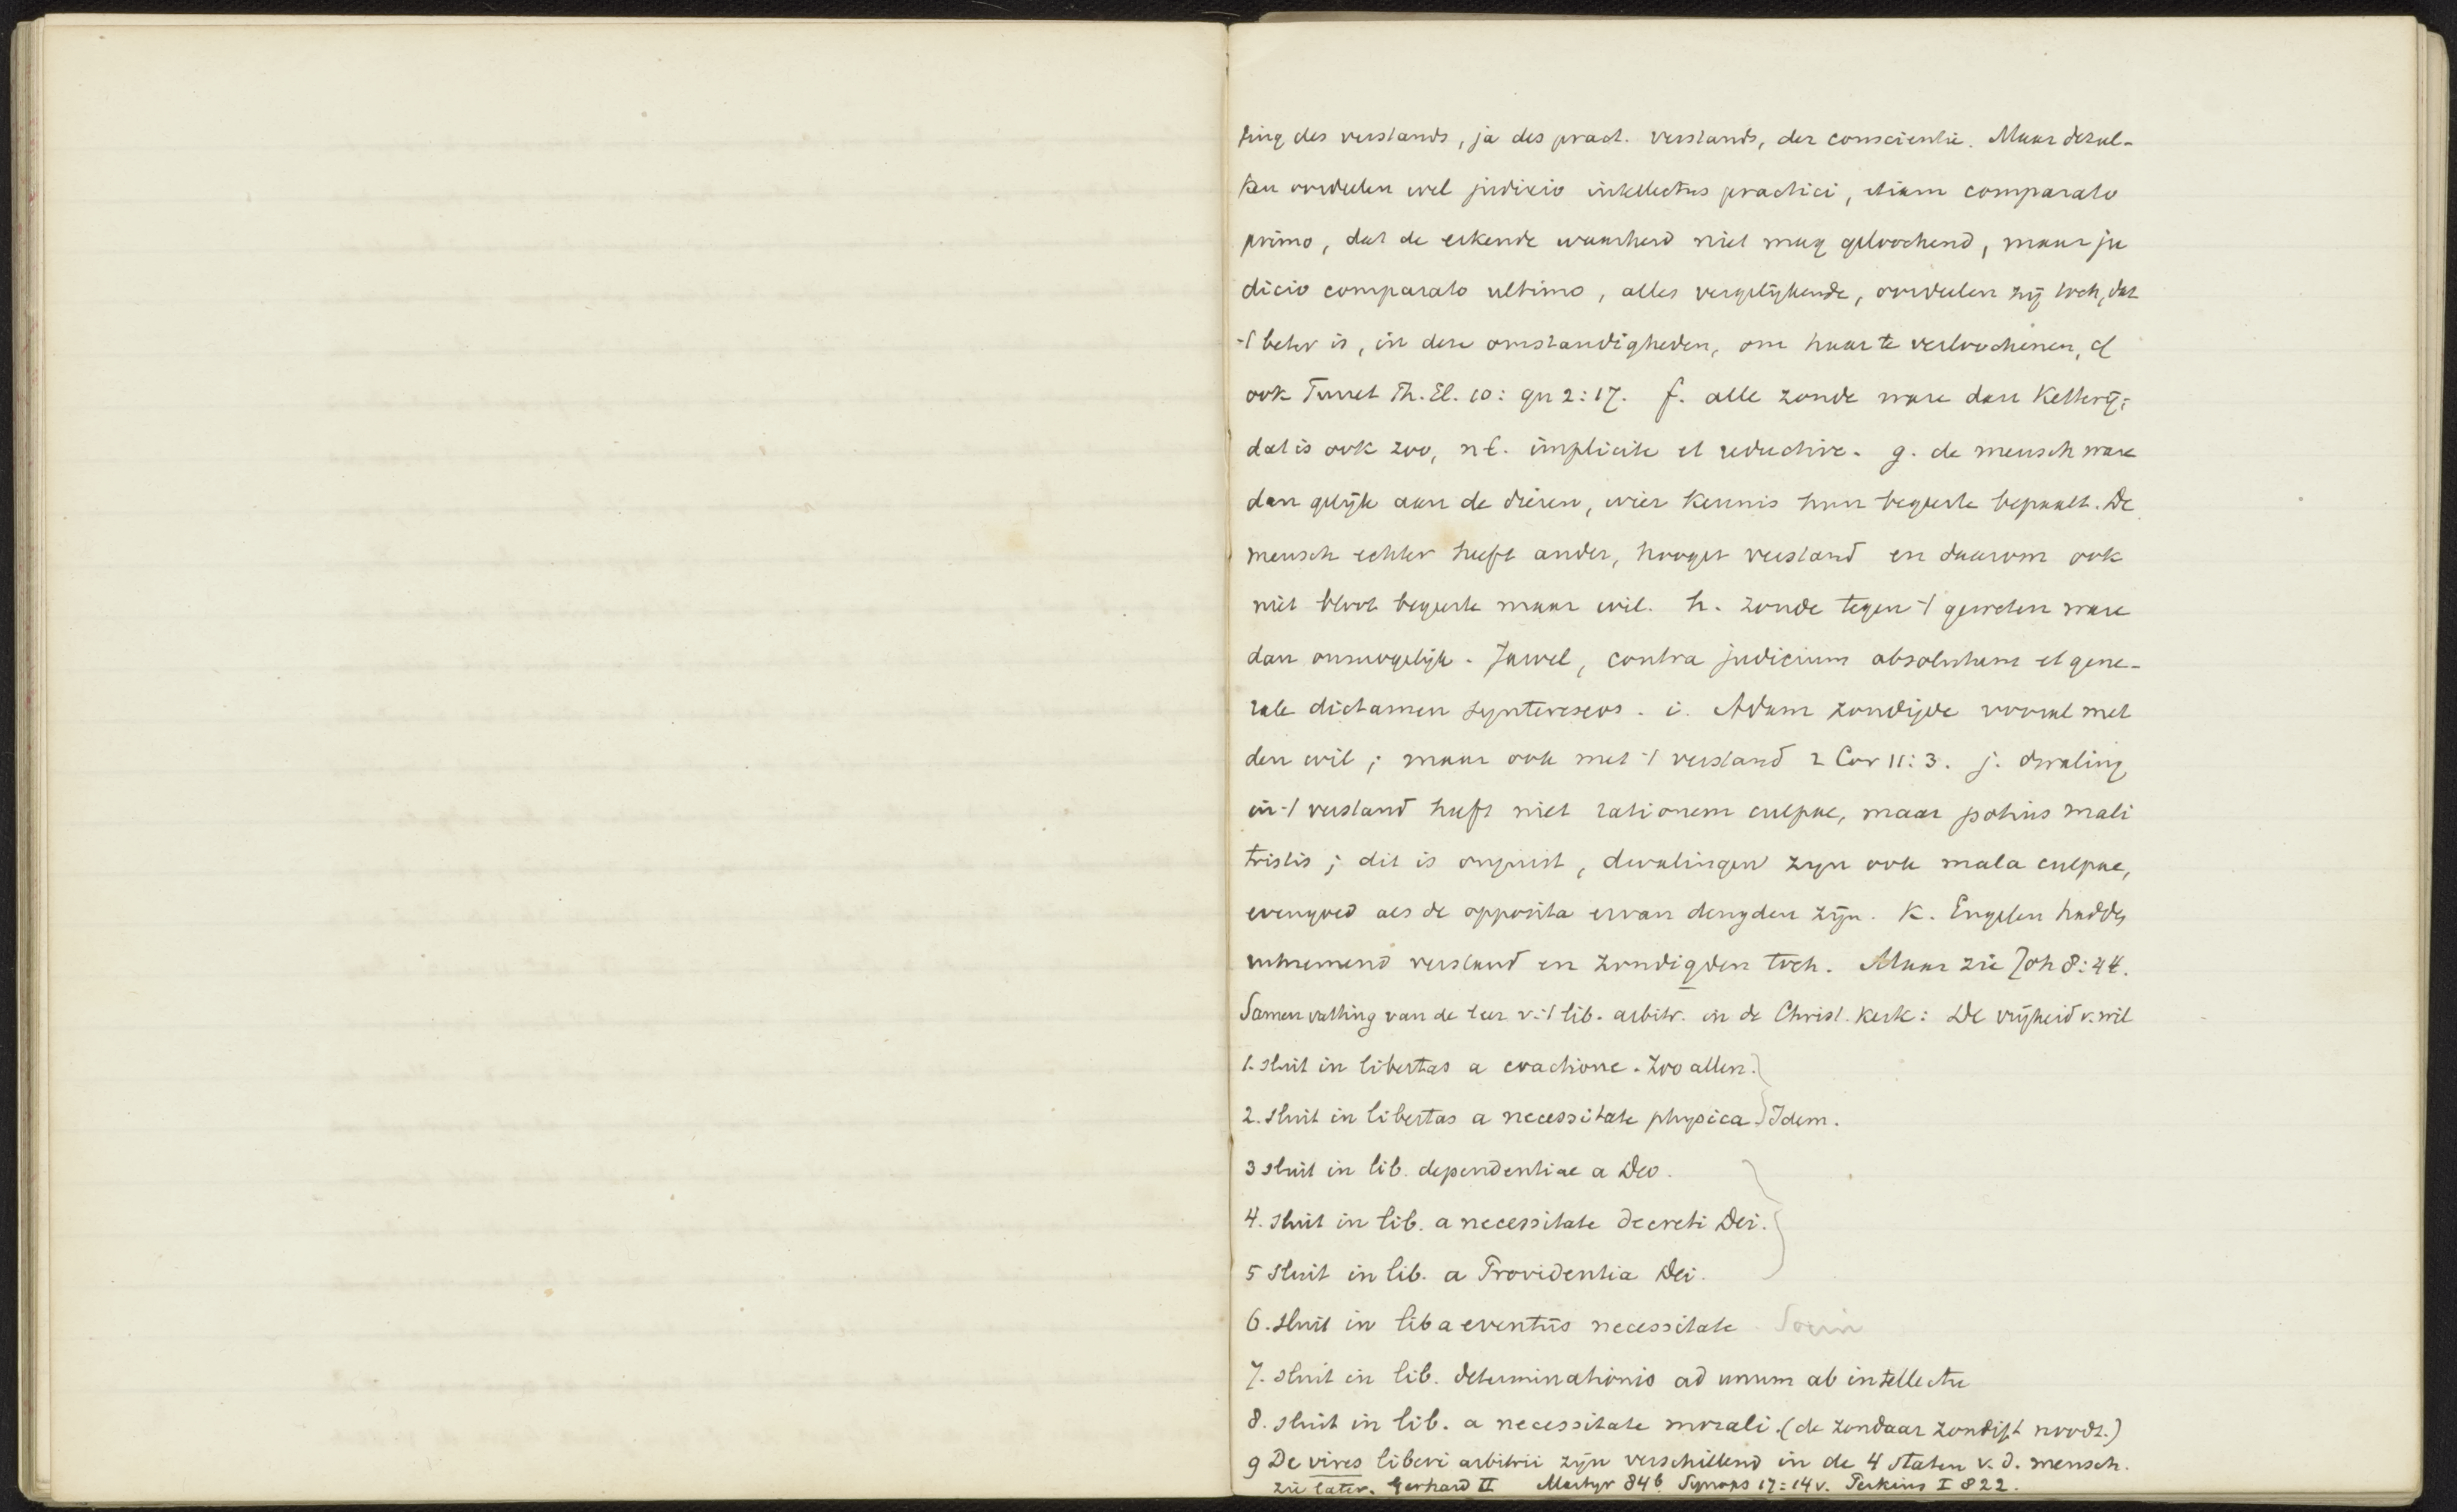 ting des verstands, ja des pract. verstands, der conscientie. Maar dezul-
ken oordeelen wel judicio intellectus practici, etiam comparato
primo, dat de erkende waarheid niet mag geloochend, maar ju
dicio comparato ultimo, alles vergelijkende, oordeelen zij toch, dat
't beter is, in deze omstandigheden, om haar te verloochenen, cf
ook Turret Th. El. 10: qu 2:17. f. alle zonde ware dan Ketterij;
dat is ook zoo, nl. implicite et reductive. g. de mensch ware
dan gelijk aan de dieren, wier kennis hun begeerte bepaalt. De
mensch echter heeft ander, hooger verstand en daarom ook
niet bloot begeerte maar wil. h. zonde tegen 't geweten ware
dan onmogelijk. Jawel, contra judicium absolutum et gene-
rale dictamen synterеseos. i. Adam zondigde vooral met
den wil; maar ook met 't verstand 2 Cor 11:3. j. dwaling
in 't verstand heeft niet rationem culpae, maar potius mali
tristis; dit is onjuist, dwalingen zijn ook mala culpae,
evengoed als de opposita ervan deugden zijn. k. Engelen hadden
uitnemend verstand en zondigden toch. Maar zie Joh 8:44.
Samenvatting van de leer v. 't lib. arbitr. in de Christ. Kerk: De vrijheid v. wil
1. sluit in libertas a coactione. Zoo allen.
2. sluit in libertas a necessitate physica. Idem.
3 sluit in lib. dependentiae a Deo.
4. sluit in lib. a necessitate decreti Dei.
5 sluit in lib. a Providentia Dei.
6. sluit in lib a eventus necessitate Socin
7. sluit in lib. determinationis ad unum ab intellectu
8. sluit in lib. a necessitate morali. (de zondaar zondigt noodz.)
9 De vires liberi arbitrii zijn verschillend in de 4 staten v. d. mensch.
zie later. Gerhard II Martyr 84b Synops 17:14v. Perkins I 822.